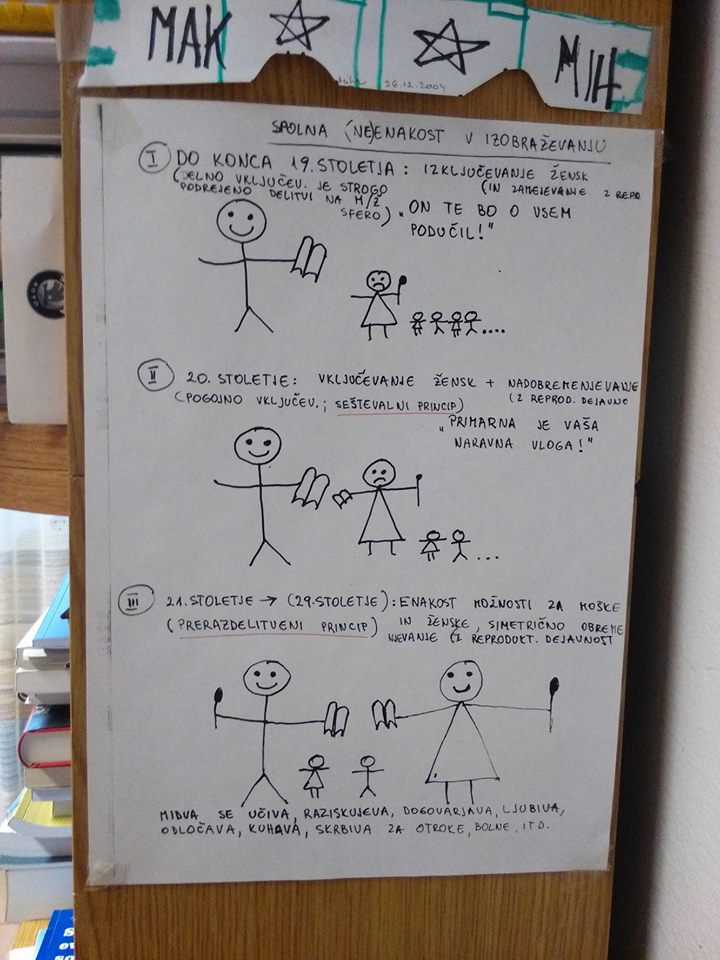 MAK
MIH
26.12.2004
SPOLNA (NE)ENAKOST V IZOBRAŽEVANJU
I DO KONCA 19. STOLETJA: IZKLJUČEVANJE ŽENSK
(DELNO VKLJUČEV. JE STROGO
PODREJENO DELITVI NA M/Ž
SFERO)
(IN ZAMEJEVANJE Z REPO
„ON TE BO O VSEM
PODUČIL!"
....
II 20. STOLETJE: VKLJUČEVANJE ŽENSK + NADOBREMENJEVANJE
(POGOJNO VKLJUČEV.; SEŠTEVALNI PRINCIP)
(Z REPROD. DEJAVNO
„PRIMARNA JE VAŠA
NARAVNA VLOGA!"
...
III 21. STOLETJE → (29. STOLETJE): ENAKOST MOŽNOSTI ZA MOŠKE
(PRERAZDELITVENI PRINCIP) IN ŽENSKE, SIMETRIČNO OBREME
NJEVANJE (Z REPRODUKT. DEJAVNOST
MIDVA SE UČIVA, RAZISKUJEVA, DOGOVARJAVA, LJUBIVA,
ODLOČAVA, KUHAVA, SKRBIVA ZA OTROKE, BOLNE, ITD.